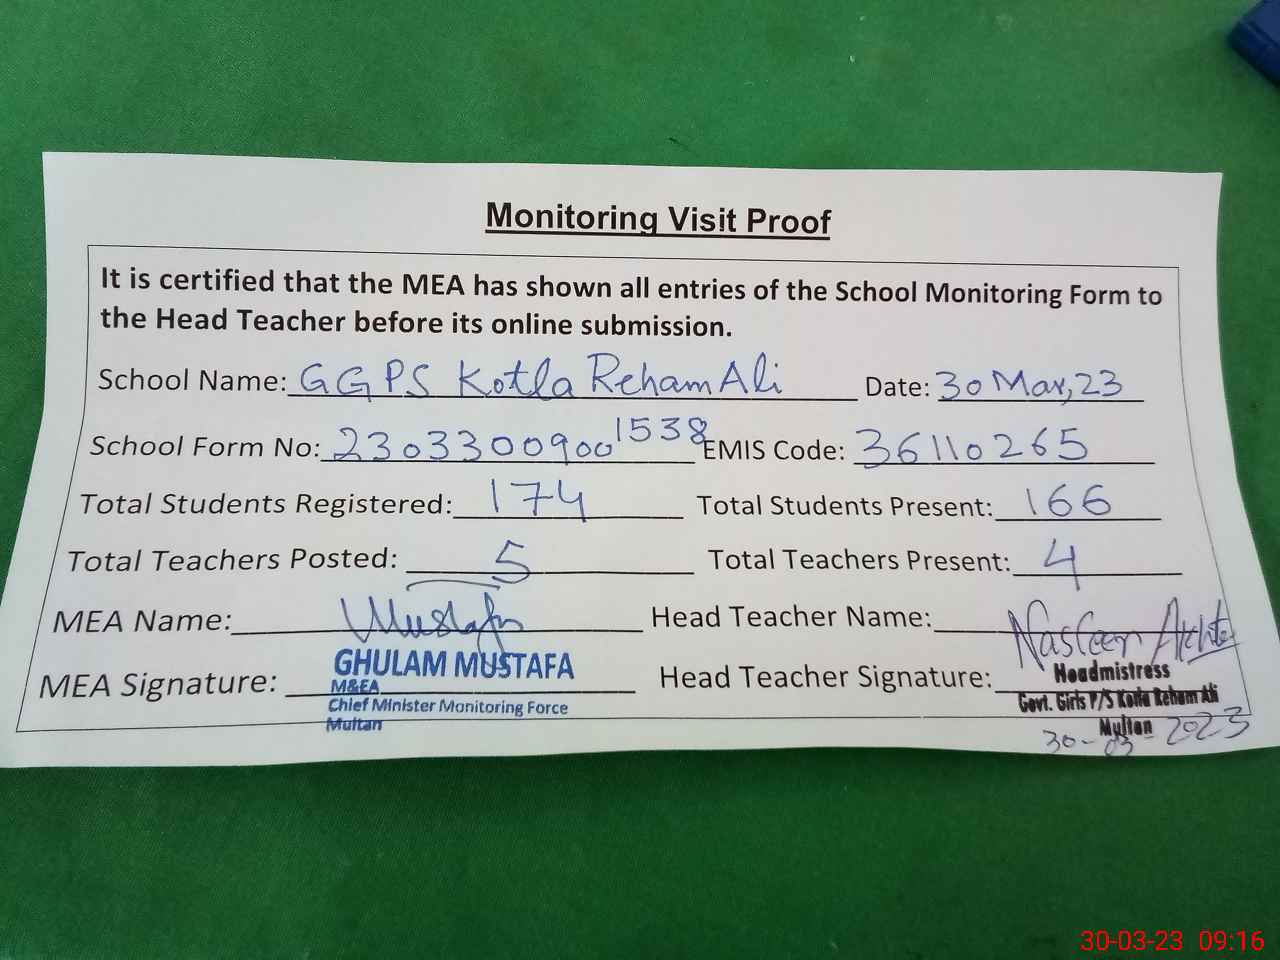 Monitoring Visit Proof
It is certified that the MEA has shown all entries of the School Monitoring Form to
the Head Teacher before its online submission.
School Name: GGPS Kotla Reham Ali Date: 30 Mar, 23
School Form No: 2303300900 1538 EMIS Code: 36110265
Total Students Registered: 174 Total Students Present: 166
Total Teachers Posted: 5 Total Teachers Present: 4
MEA Name: Mustafa Head Teacher Name: Nasleem Akhter
MEA Signature: Head Teacher Signature:
GHULAM MUSTAFA
M&EA
Chief Minister Monitoring Force
Multan
Headmistress
Govt. Girls P/S Kotla Reham Ali
Multan
30-03-2023
30-03-23 09:16